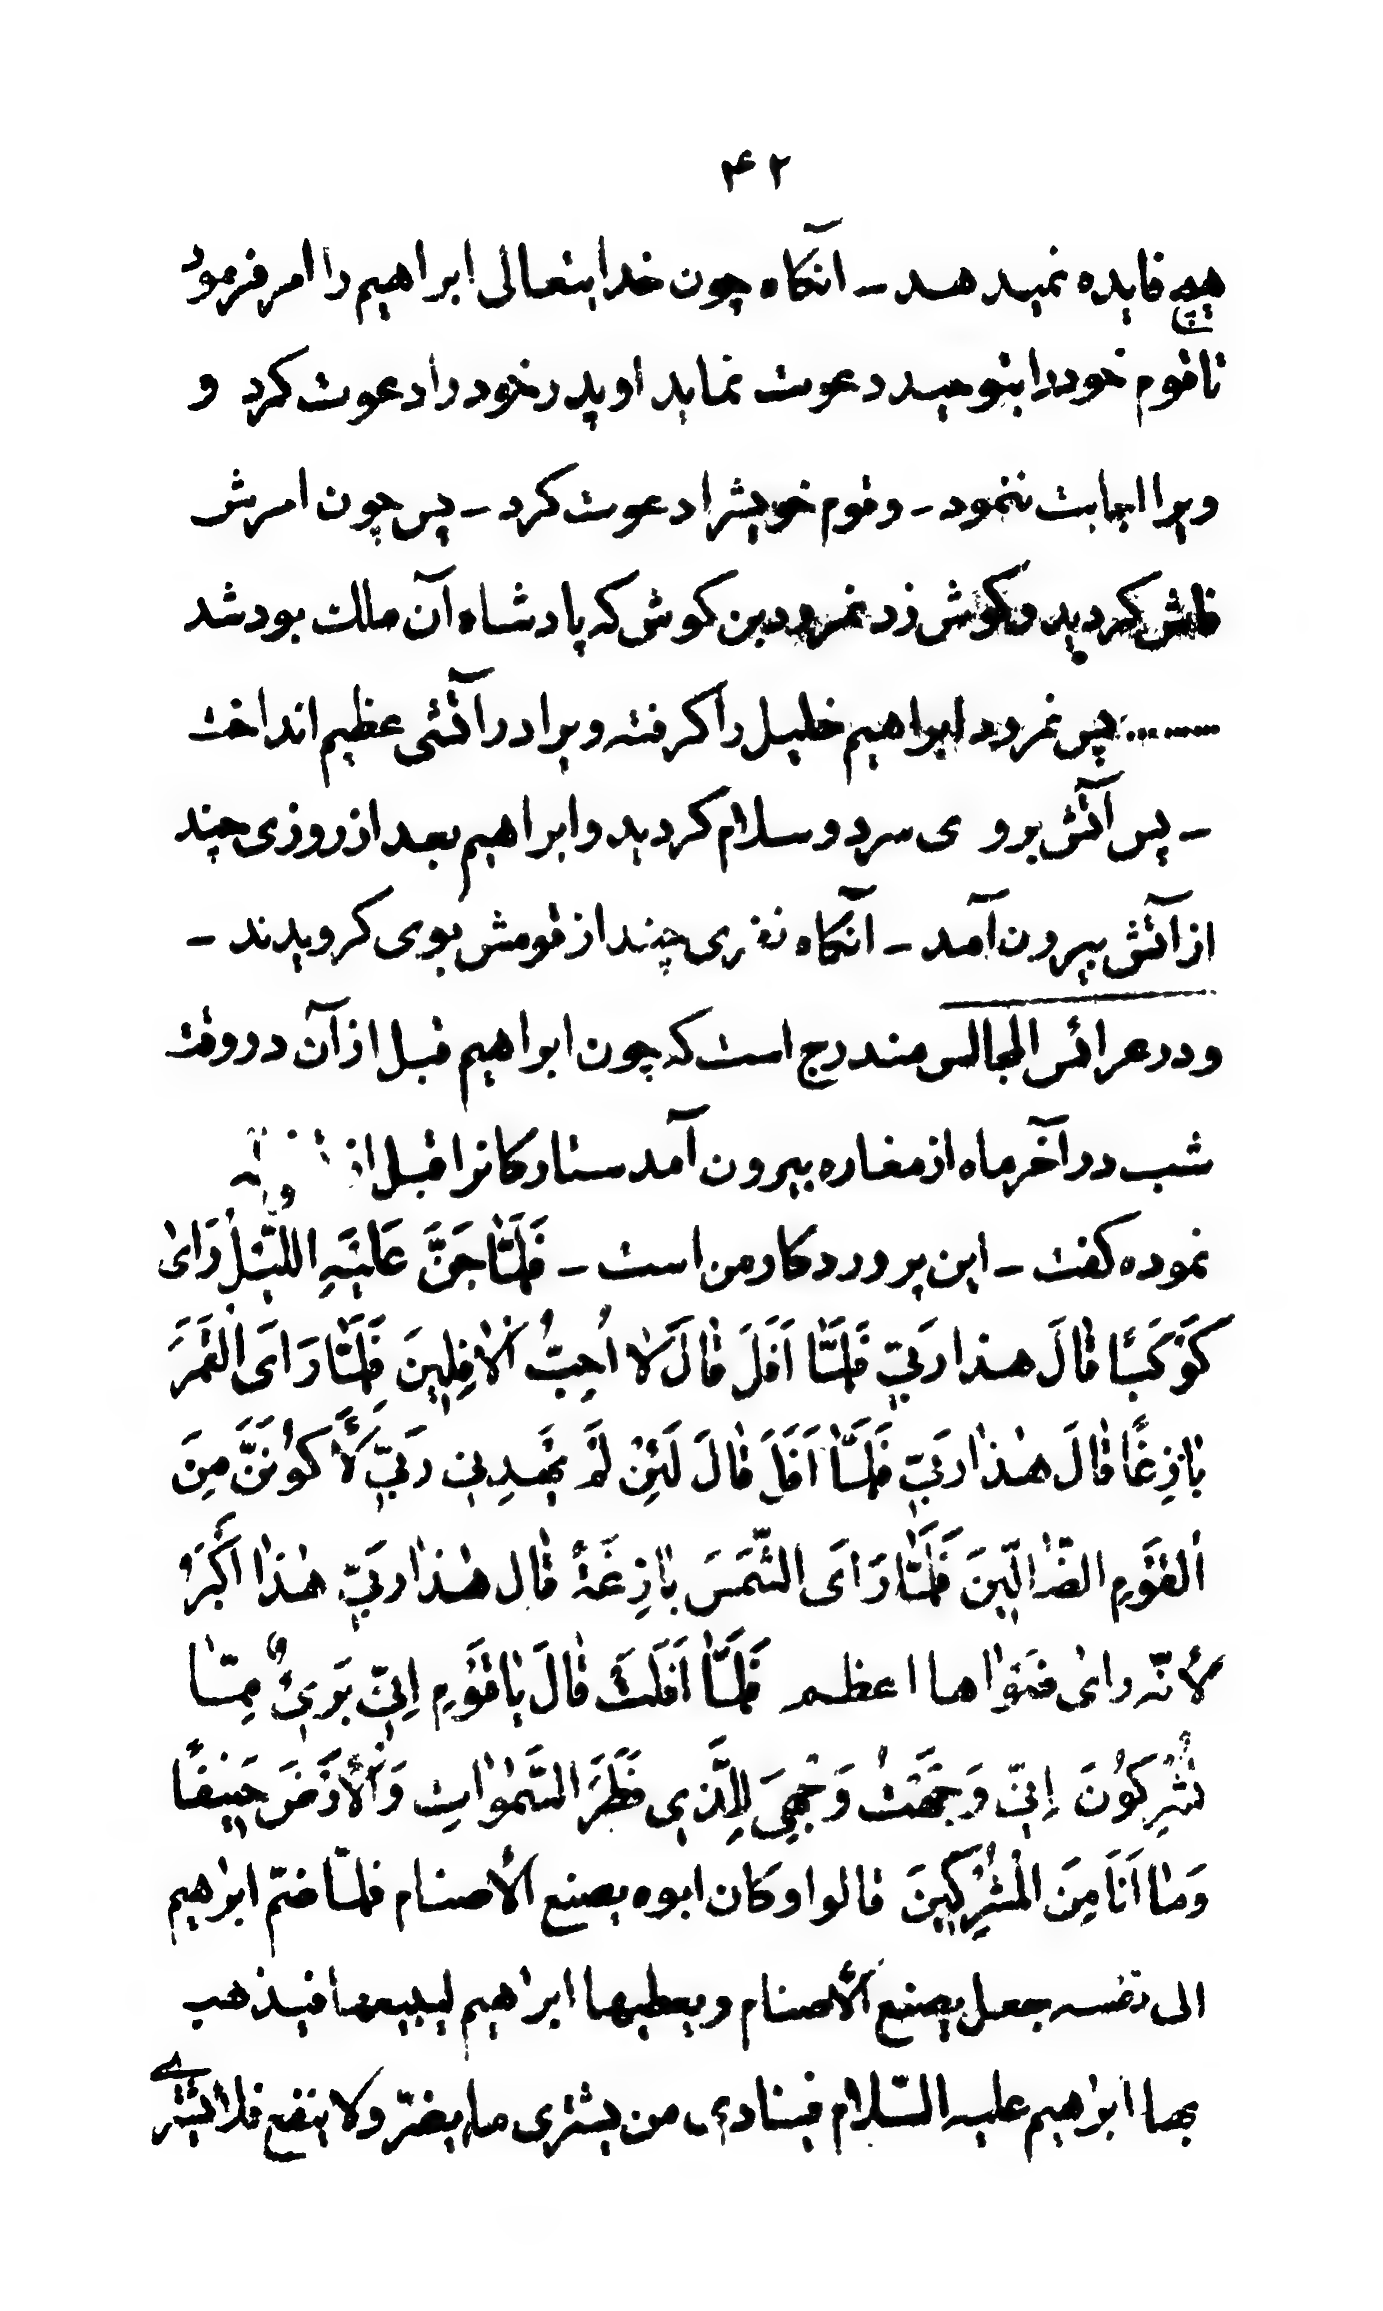 ۴۲
هیچ فایده نمیدهد ــ آنگاه چون خدایتعالی ابراهیم را امر فرمود
تا قوم خود را بتوحید دعوت نماید او پدر خود را دعوت کرد و
ویرا اجابت ننمود ــ و قوم خویشرا دعوت کرد ــ پس چون امرش
فاش گردید و گوش زد نمرود بن کوش که پادشاه آن ملک بود شد
......... پس نمرود ابراهیم خلیل را گرفته ویرا در آتشی عظیم انداخت
ــ پس آتش بروی سرد و سلام گردید و ابراهیم بعد از روزی چند
از آتش بیرون آمد ــ آنگاه نفری چند از قومش بوی گرویدند ــ
و در عرائس المجالس مندرج است که چون ابراهیم قبل از آن در وقت
شب در آخر ماه از مغاره بیرون آمد ستارگانرا قبل از
نموده گفت ــ این پروردگار من است ــ فَلَمَّا جَنَّ عَلَیْهِ اللَّیْلُ رَایٰ
کَوْکَبًا قٰالَ هذا رَبّی فَلَمَّا اَفَلَ قٰالَ لاٰ اُحِبُّ الْاٰفِلِینَ فَلَمَّا رَاَی الْقَمَرَ
بٰازِغًا قٰالَ هٰذا رَبّی فَلَمَّا اَفَلَ قٰالَ لَئِنْ لَمْ یَهْدِنی رَبّی لَأَکُونَنَّ مِنَ
الْقَوْمِ الضّٰالّینَ فَلَمَّا رَاَی الشَّمْسَ بٰازِغَةً قٰال هٰذا رَبّی هٰذٰا اَکْبَرُ
لأنّه رای ضَوْاها اعظم فَلَمّٰا اَفَلَتْ قٰالَ یٰا قَوْمِ اِنّی بَرِیٌٔ مِمّٰا
تُشْرِکُونَ اِنّی وَجَّهْتُ وَجْهِیَ لِلَّذی فَطَرَ السَّمٰوٰاتِ وَالْأَرْضَ حَنِیفًا
وَمٰا اَنَا مِنَ الْمُشْرِکِینَ قالوا و کان ابوه یصنع الأصنام فلمّا ضمّ ابرٰهیم
الی نفسه جعل یصنع الأصنام و یعطیها ابرٰهیم لیبیعها فیذهب
بها ابرٰهیم علیه السّلام فینادی من یشتری ما یضرّ ولا ینفع فلا یشتری